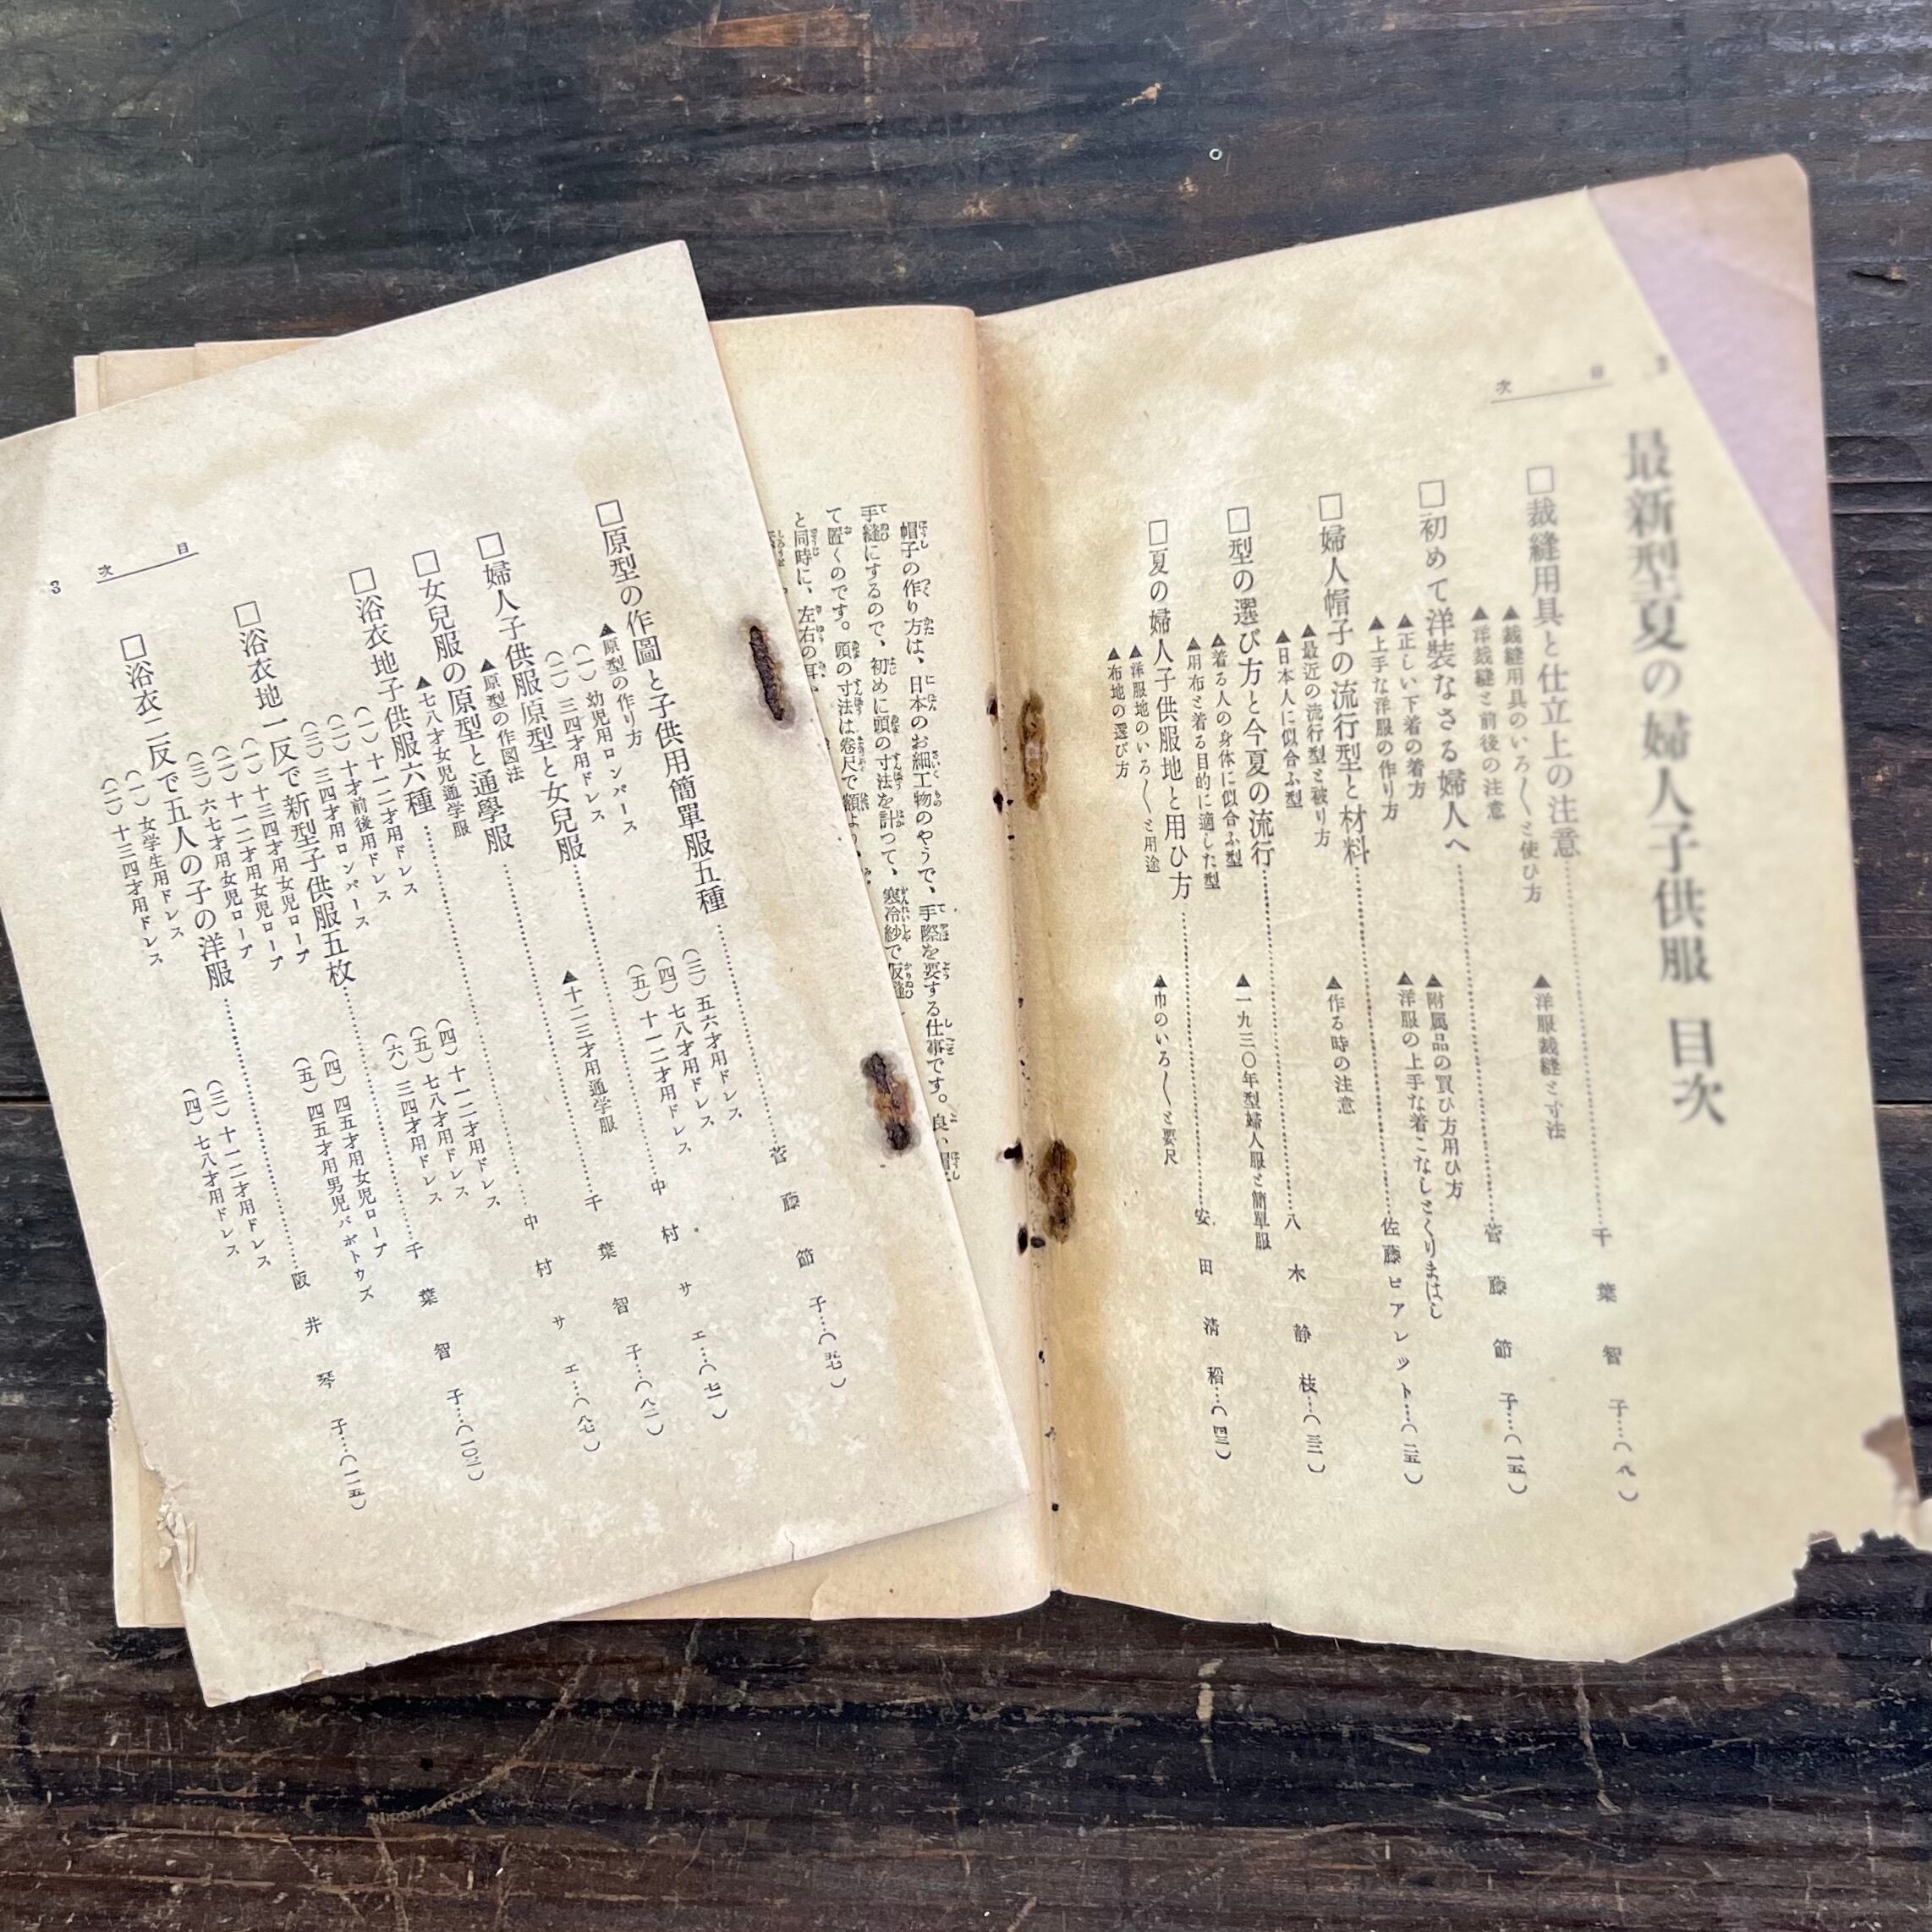 目次
最新型夏の婦人子供服 目次
□裁縫用具と仕立上の注意……千葉智子…(八)
▲裁縫用具のいろ〱と使ひ方
▲洋裁縫と前後の注意
▲洋服裁縫と寸法
□初めて洋装なさる婦人へ……菅藤節子…(一五)
▲正しい下着の着方
▲上手な洋服の作り方
▲附属品の買ひ方用ひ方
▲洋服の上手な着こなしとくりまはし
□婦人帽子の流行型と材料……佐藤ピアレット…(二五)
▲最近の流行型と被り方
▲日本人に似合ふ型
▲作る時の注意
□型の選び方と今夏の流行……八木静枝…(三一)
▲着る人の身体に似合ふ型
▲用布と着る目的に適した型
▲一九三〇年型婦人服と簡單服
□夏の婦人子供服地と用ひ方……安田清稲…(四三)
▲洋服地のいろ〱と用途
▲布地の選び方
▲巾のいろ〱と要尺
帽子の作り方は、日本のお細工物のやうで、手際を要する仕事です。良い帽子
手縫にするので、初めに頭の寸法を計つて、寒冷紗で仮縫
て置くのです。頭の寸法は巻尺で額より、
と同時に、左右の耳
□原型の作圖と子供用簡單服五種……菅藤節子…(五七)
▲原型の作り方
(一)幼児用ロンパース
(二)三四才用ドレス
(三)五六才用ドレス
(四)七八才用ドレス
(五)十一二才用ドレス
□婦人子供服原型と女兒服……中村サエ…(七一)
▲原型の作図法
▲十二三才用通学服
□女兒服の原型と通學服……千葉智子…(八二)
▲七八才女児通学服
□浴衣地子供服六種……中村サエ…(八七)
(一)十一二才用ドレス
(二)十才前後用ドレス
(三)三四才用ロンパース
(四)十一二才用ドレス
(五)七八才用ドレス
(六)三四才用ドレス
□浴衣地一反で新型子供服五枚……千葉智子…(一〇二)
(一)十三四才用女児ローブ
(二)十一二才用女児ローブ
(三)六七才用女児ローブ
(四)四五才用女児ローブ
(五)四五才用男児パボトウズ
□浴衣二反で五人の子の洋服……阪井琴子…(一一五)
(一)女学生用ドレス
(二)十三四才用ドレス
(三)十一二才用ドレス
(四)七八才用ドレス
目次
3